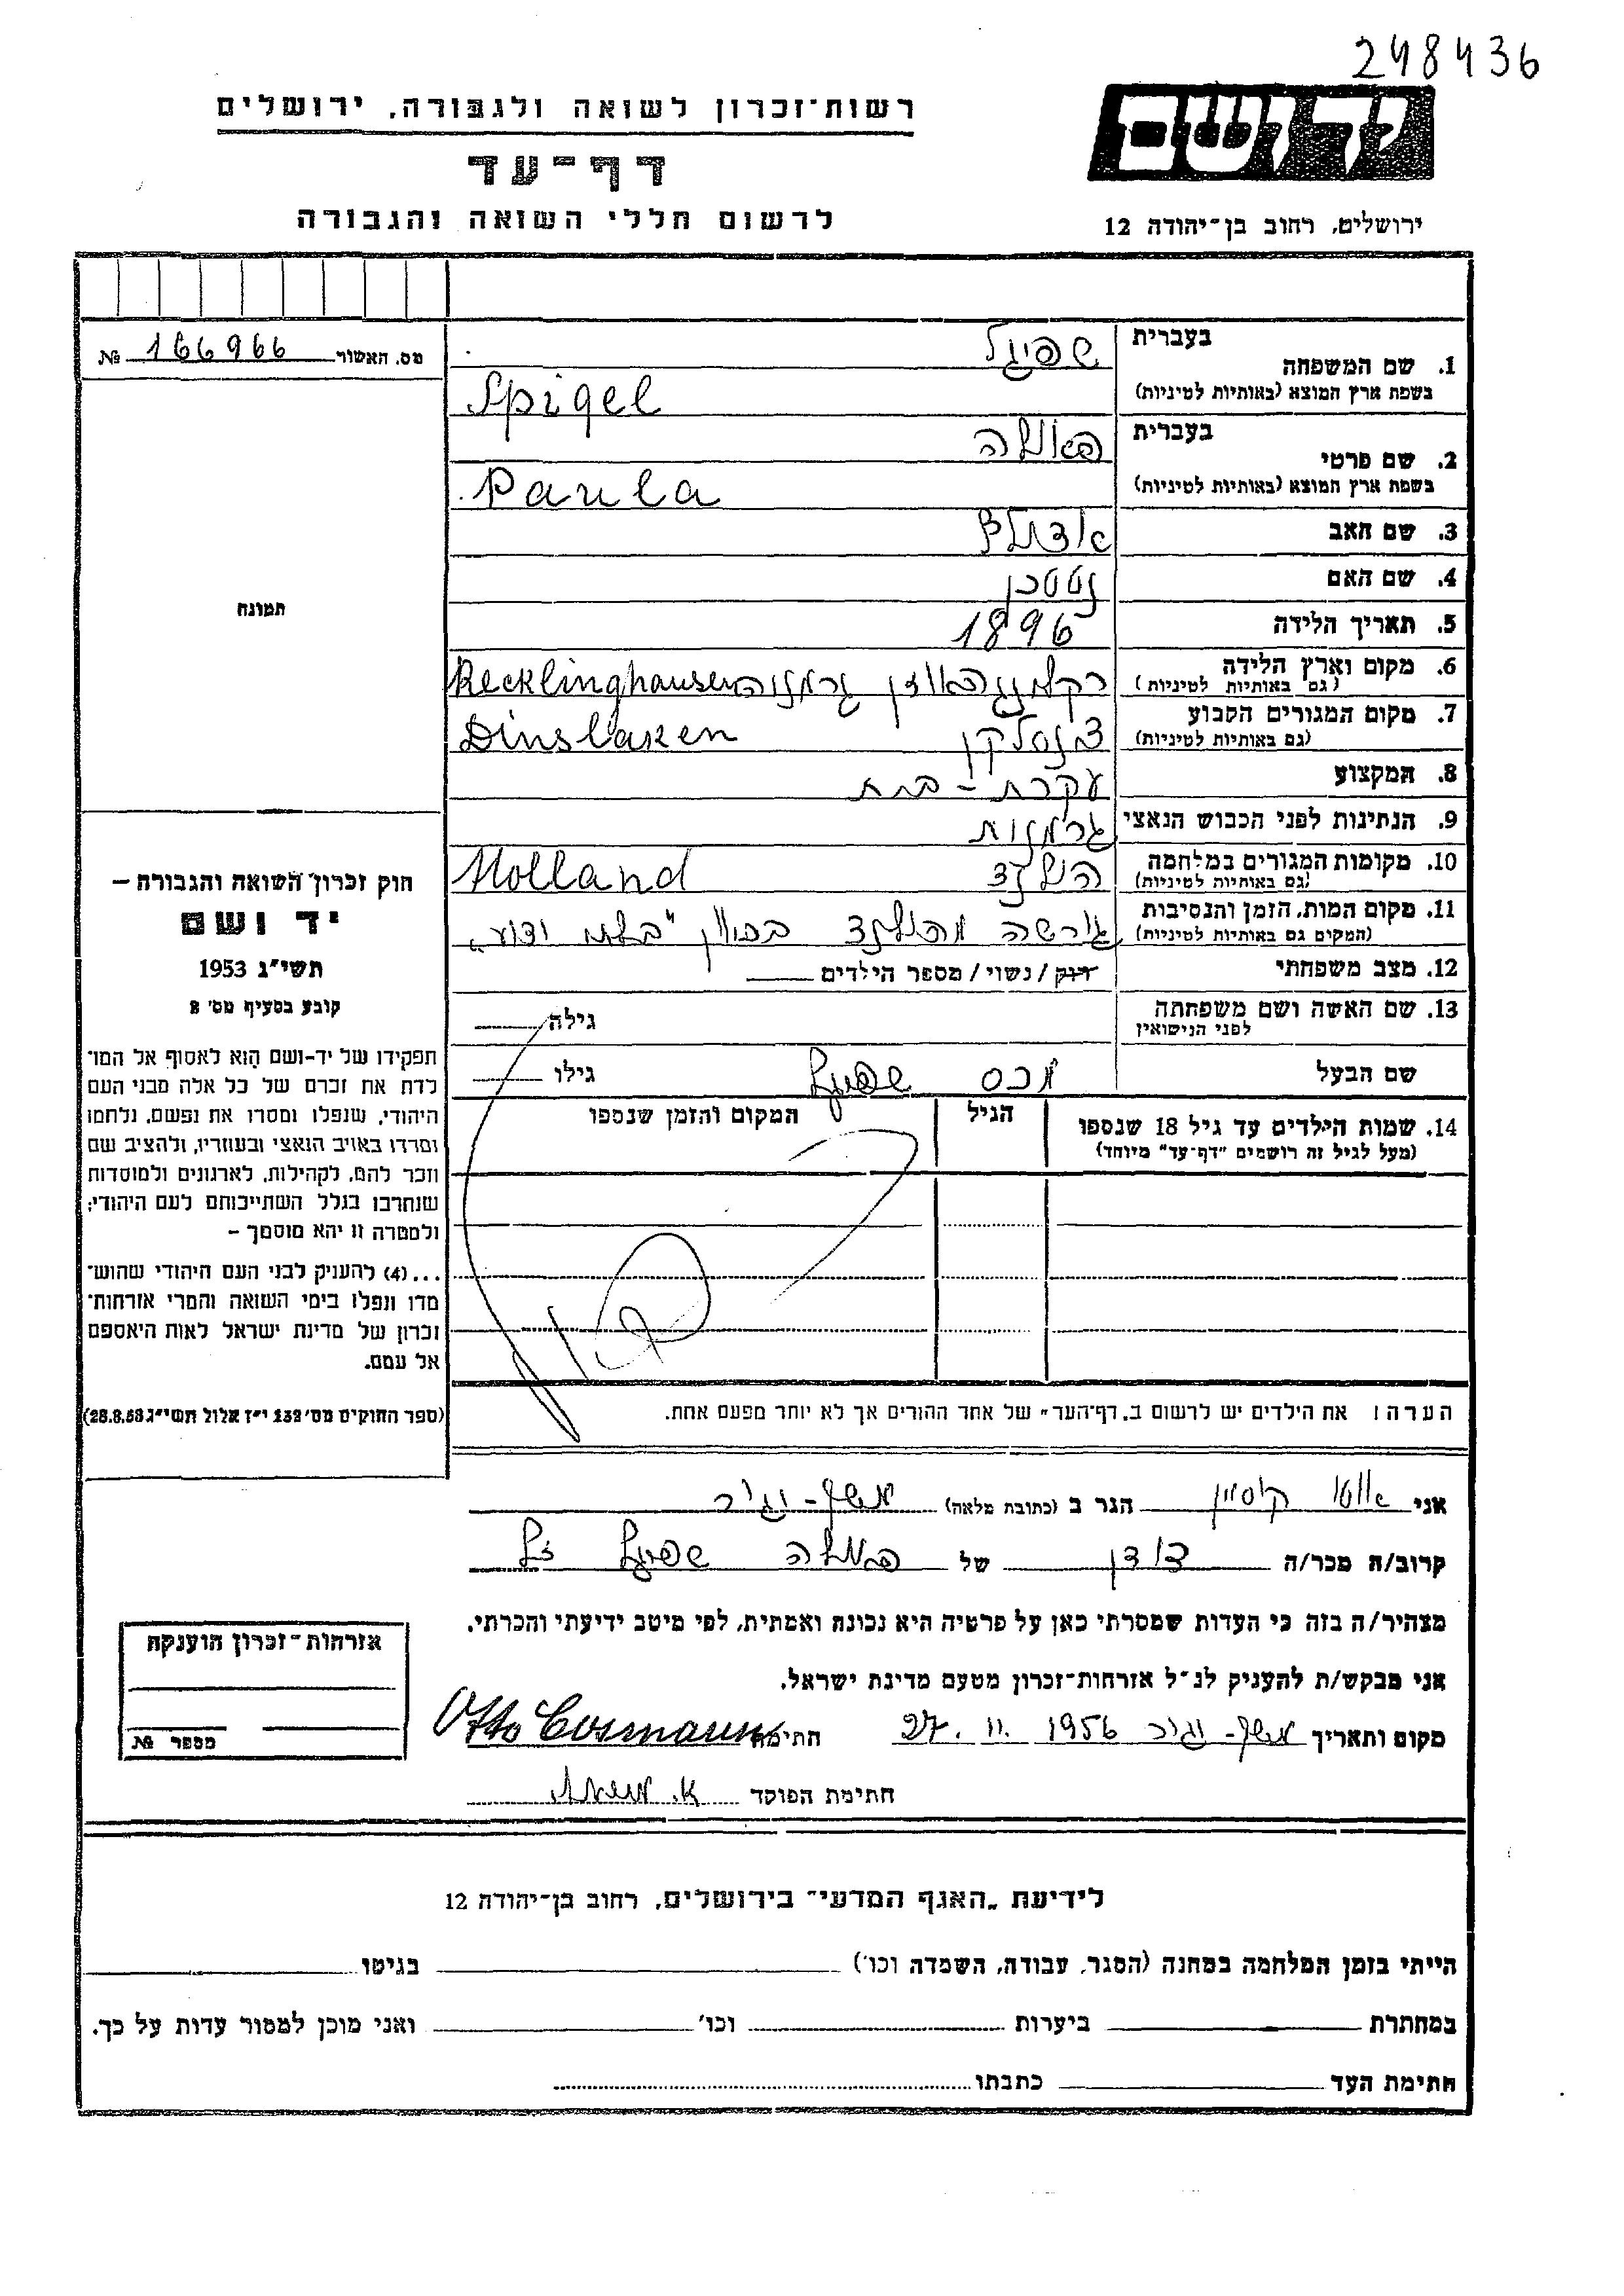 248436
יד ושם
רשות־זכרון לשואה ולגבורה, ירושלים
דף־עד
לרשום חללי השואה והגבורה
ירושלים, רחוב בן־יהודה 12
מס. האשור 166966 №
תמונה
בעברית
1. שם המשפחה שפיגל
בשפת ארץ המוצא (באותיות לטיניות) Spigel
בעברית
2. שם פרטי פאולה
בשפת ארץ המוצא (באותיות לטיניות) Paula
3. שם האב אדולף
4. שם האם
5. תאריך הלידה 1896
6. מקום וארץ הלידה Recklinghausen גרמניה
(גם באותיות לטיניות)
7. מקום המגורים הקבוע דינסלקן Dinslaken
(גם באותיות לטיניות)
8. המקצוע עקרת - בית
9. הנתינות לפני הכבוש הנאצי גרמנית
10. מקומות המגורים במלחמה הולנד Holland
(גם באותיות לטיניות)
11. מקום המות, הזמן והנסיבות גורשה מהולנד בכוון "בלתי ידוע"
(המקום גם באותיות לטיניות)
12. מצב משפחתי רווק / נשוי / מספר הילדים
13. שם האשה ושם משפחתה גילה
לפני הנישואין
שם הבעל מכס שפיגל גילו
14. שמות הילדים עד גיל 18 שנספו הגיל המקום והזמן שנספו
(מעל לגיל זה רושמים "דף־עד" מיוחד)
הערה: את הילדים יש לרשום ב„דף־העד" של אחד ההורים אך לא יותר מפעם אחת.
חוק זכרון השואה והגבורה —
יד ושם
תשי"ג 1953
קובע בסעיף מס' 2
תפקידו של יד-ושם הוא לאסוף אל המו־
לדת את זכרם של כל אלה מבני העם
היהודי, שנפלו ומסרו את נפשם, נלחמו
ומרדו באויב הנאצי ובעוזריו, ולהציב שם
וזכר להם, לקהילות, לארגונים ולמוסדות
שנחרבו בגלל השתייכותם לעם היהודי;
ולמטרה זו יהא מוסמך —
...(4) להעניק לבני העם היהודי שהוש־
מדו ונפלו בימי השואה והמרי אזרחות־
זכרון של מדינת ישראל לאות היאספם
אל עמם.
(ספר החוקים מס' 132 י"ז אלול תשי"ג 28.8.53)
אני אוטו קוסמן הגר ב (כתובת מלאה) משק-יגור
קרוב/ה מכר/ה דודן של פאולה שפיגל ז"ל
מצהיר/ה בזה כי העדות שמסרתי כאן על פרטיה היא נכונה ואמתית, לפי מיטב ידיעתי והכרתי.
אני מבקש/ת להעניק לנ"ל אזרחות־זכרון מטעם מדינת ישראל.
מקום ותאריך משק-יגור 27.11.1956 חתימה Otto Cosmann
חתימת הפוקד
אזרחות־זכרון הוענקה
מספר №
לידיעת „האגף המדעי" בירושלים, רחוב בן־יהודה 12
הייתי בזמן המלחמה במחנה (הסגר, עבודה, השמדה וכו') בגיטו
במחתרת ביערות וכו' ואני מוכן למסור עדות על כך.
חתימת העד כתבתו